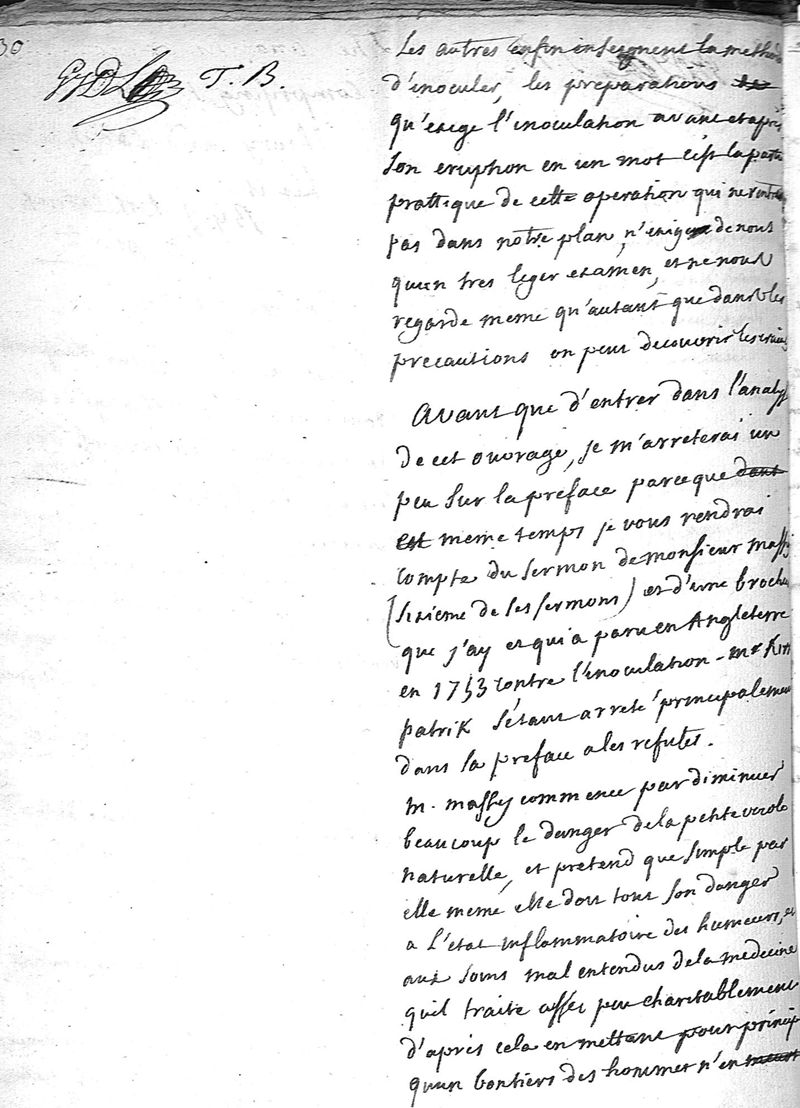 30
T. B.
Les autres enfin enseignent la methode
d'inoculer, les preparations
qu'exige l'inoculation avant et après
son eruption en un mot c'est la partie
prattique de cette operation qui ne rentre
pas dans notre plan, n'exige de nous
quun tres leger examen, et ne nous
regarde meme qu'autant que dans les
precautions on peut decouvrir les vrais
Avant que d'entrer dans l'analyse
de cet ouvrage, je m'arreterai un
peu sur la preface parceque dans
est meme temps je vous rendrai
compte du sermon de monsieur massy
(sixieme de ses sermons) et d'une brochure
que j'ay et qui a paru en Angleterre
en 1753 contre l'inoculation - mr Kirk
patrik s'étant arreté principalement
dans sa preface a les refuter.
m. massy commence par diminuer
beaucoup le danger de la petite verole
naturelle, et pretend que simple par
elle meme elle doit tout son danger
a l'état inflammatoire des humeurs, et
aux soins mal entendus de la medecine
quil traite assés peu charitablement
d'après cela en mettant pour principe
quun bontiers des hommes n'en meurt